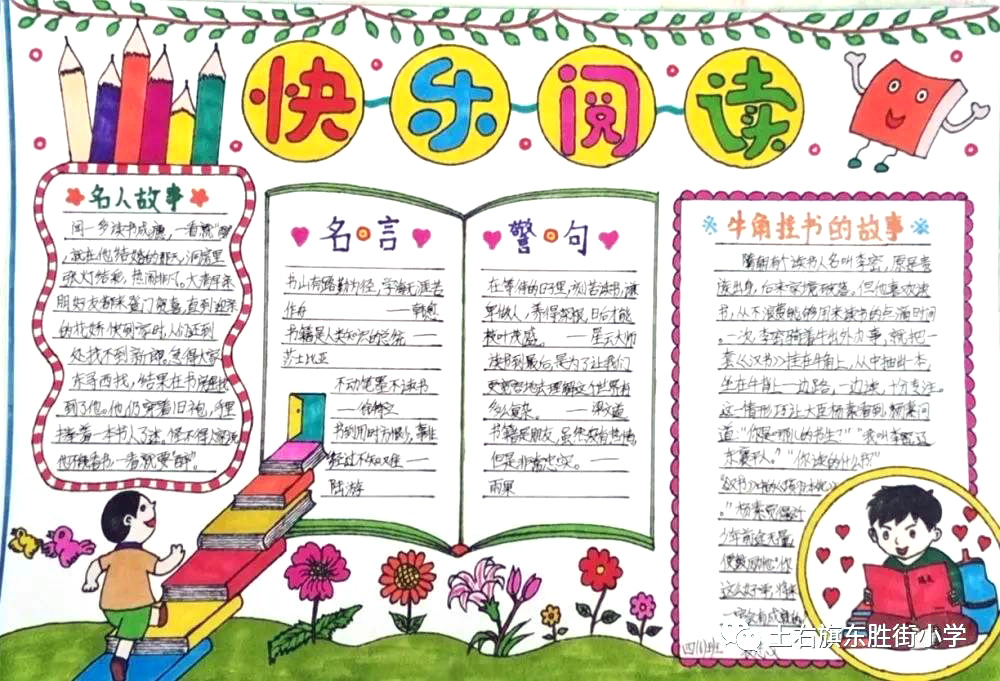 快乐阅读
名人故事
闻一多读书成瘾，一看就“醉”
，就在他结婚的那天，洞房里
张灯结彩，热闹非凡。大清早亲
朋好友都来登门贺喜，直到迎亲
的花轿快到家时，人们还到
处找不到新郎。急得大家
东寻西找，结果在书房里找
到了他。他仍穿着旧袍，手里
捧着一本书入了迷。怪不得人家说
他不能看书，一看就要“醉”。
名言
书山有路勤为径，学海无涯苦
作舟 ——韩愈
书籍是人类知识的总统 ——
莎士比亚
不动笔墨不读书
——徐特立
书到用时方恨少，事非
经过不知难 ——
陆游
警句
在等待的日子里，刻苦读书，谦
卑做人，养得深根，日后才能
枝叶茂盛。 ——星云大师
读书到最后，是为了让我们
更宽容地去理解这个世界有
多么复杂。 ——梁文道
书籍是朋友，虽然没有热情，
但是非常忠实。 ——
雨果
牛角挂书的故事
隋朝有个读书人名叫李密，原是贵
族出身，后来家境破落。但他喜欢读
书，从不浪费能够用来读书的点滴时间
。一次，李密骑着牛出外办事，就把一
套《汉书》挂在牛角上，从中抽出一本，
坐在牛背上一边赶路，一边读，十分专注。
这一情形巧让大臣杨素看到，杨素问
道：“你是哪儿的书生？”“我叫李密，辽
东襄平人。”“你读的什么书？”
。”杨素觉得这
少年前途无量
便鼓励他：“你
这么好学，将来
一定会有成就的
土右旗东胜街小学